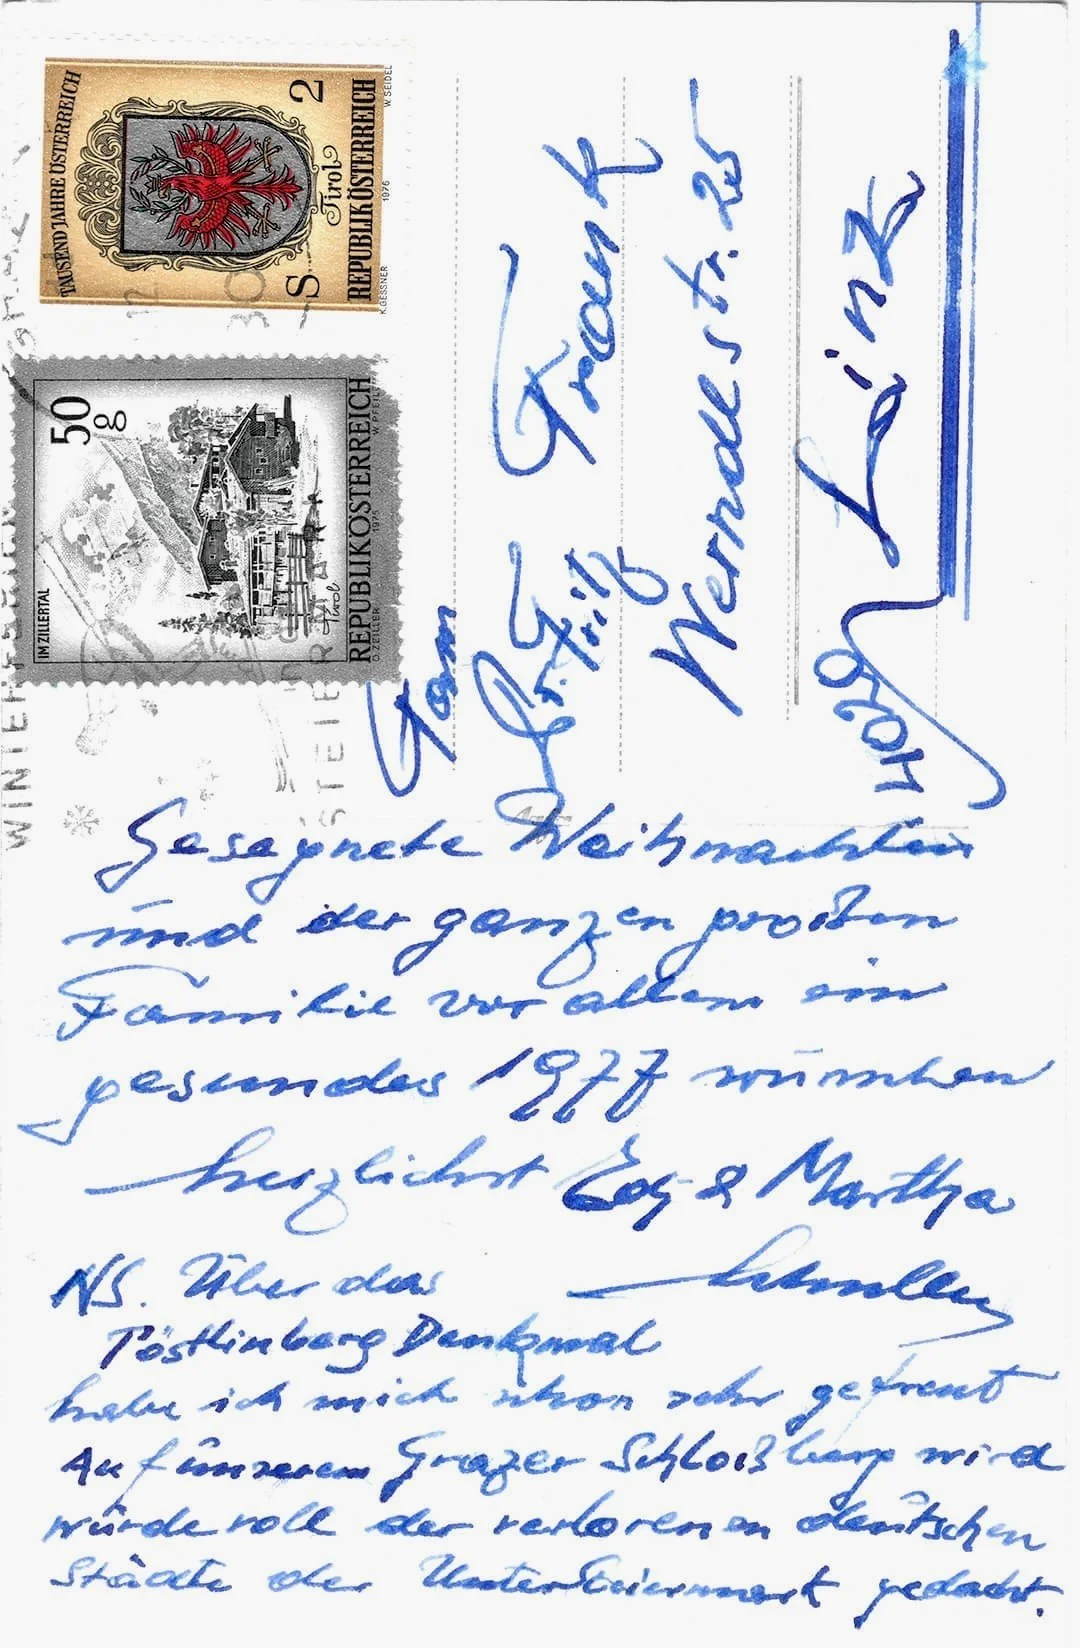 TAUSEND JAHRE ÖSTERREICH
S 2
Tirol
REPUBLIK ÖSTERREICH
K.GESSNER 1976 W.SEIDEL
50 g
IM ZILLERTAL
Tirol
REPUBLIK ÖSTERREICH
O.ZEILLER 1975 W.PFEILER
STEIERMARK
Fam
Dr. Fritz Frank
Werndlstr. 25
4020 Linz
Gesegnete Weihnachten
und der ganzen großen
Familie vor allem ein
gesundes 1977 wünschen
herzlichst Edy & Martha
NS. Über das
Pöstlinberg Denkmal
habe ich mich schon sehr gefreut
Auf unserem Grazer Schloßberg wird
würdevoll der verlorenen deutschen
Städte der Untersteiermark gedacht.